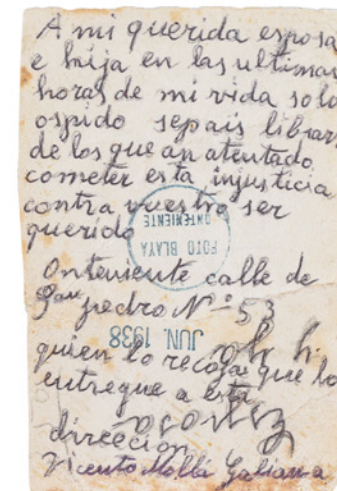 A mi querida esposa
e hija en las ultimas
horas de mi vida solo
os pido sepais librar
de los que an atentado
cometer esta injusticia
contra vuestro ser
querido
FOTO BLAYA
ONTENIENTE
Onteniente calle de
San pedro Nº 53
JUN. 1938
quien lo recoja que lo
entregue a esta
direccion
Vicente Mollá Galiana